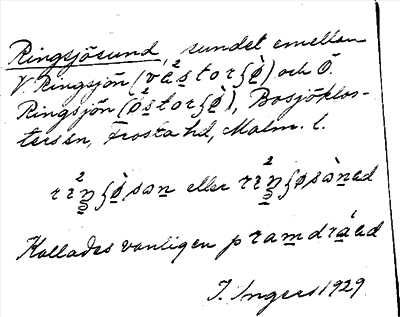 Ringsjösund, sundet emellan
V Ringsjön (vɛ́²storʃø̀) och Ö.
Ringsjön (ǿ²storʃø̀), Bosjöklos-
ters sn, Frosta hd, Malm. l.
rɪ²ŋʃøsən eller rɪ²ŋʃøsànəd
Kallades vanligen pramdráəd
I. Ingers 1929